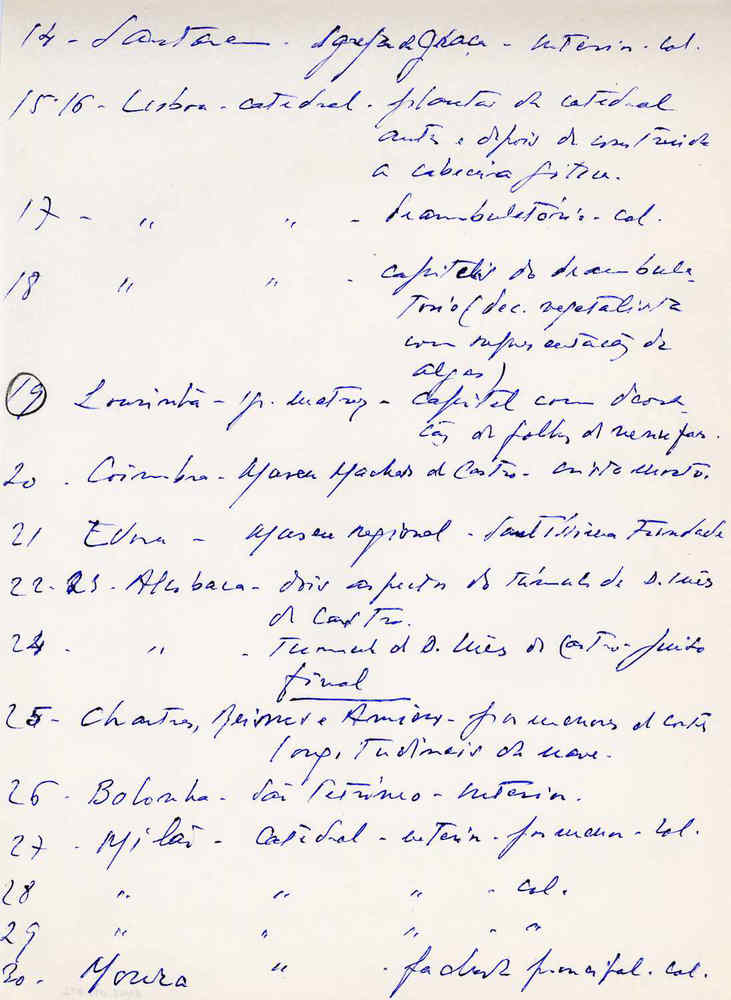 14 - Santarem - Igreja da Graça - interior - col.
15-16 - Lisboa - catedral - plantas da catedral
antes e depois de construida
a cabeceira gótica.
17 - " " - deambulatório - col.
18 " " - capiteis do deambula-
torio (dec. vegetalista
com representação de
algas)
19 Lourinhã - ig. matriz - capitel com decora-
ção de folhas de nenufar.
20 - Coimbra - Museu Machado de Castro - cristo morto.
21 Evora - Museu regional - Santíssima Trindade
22-23 - Alcobaça - dois aspectos do túmulo de D. Inês
de Castro.
24 - " - Tumulo de D. Inês de Castro - Juizo
final
25 - Chartres, Reims e Amiens - pormenores de cortes
longitudinais da nave.
26 - Bolonha - São Petrónio - interior.
27 - Milão - Catedral - interior - pormenor - col.
28 " " " - col.
29 " " " - "
30 - Moura " - fachada principal - col.